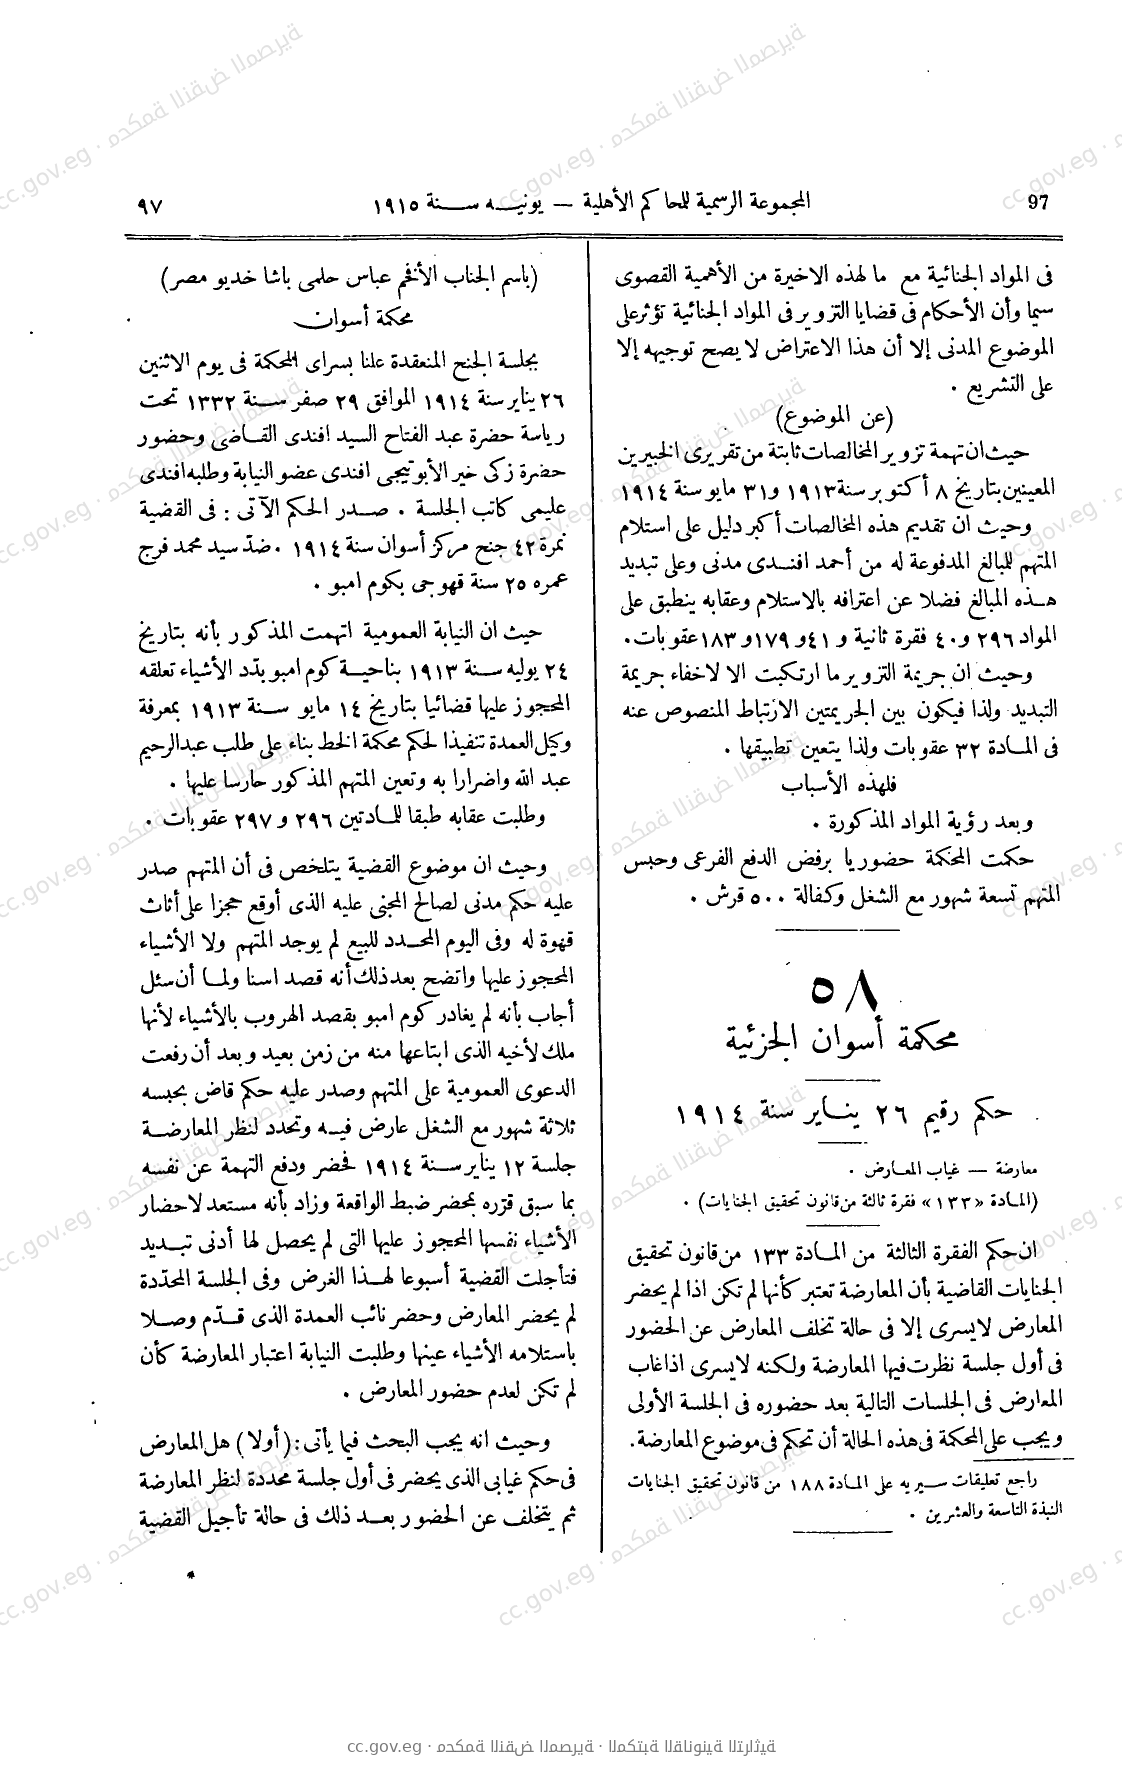 97
المجموعة الرسمية للمحاكم الأهلية — يونيه سنة ١٩١٥
٩٧
فى المواد الجنائية مع ما لهذه الاخيرة من الأهمية القصوى
سيما وأن الأحكام فى قضايا التزوير فى المواد الجنائية تؤثر على
الموضوع المدنى إلا أن هذا الاعتراض لا يصح توجيهه إلا
على التشريع .
(عن الموضوع)
حيث ان تهمة تزوير المخالصات ثابتة من تقريرى الخبيرين
المعينين بتاريخ ٨ أكتوبر سنة ١٩١٣ و ٣١ مايو سنة ١٩١٤
وحيث ان تقديم هذه المخالصات أكبر دليل على استلام
المتهم للمبالغ المدفوعة له من أحمد افندى مدنى وعلى تبديد
هذه المبالغ فضلا عن اعترافه بالاستلام وعقابه ينطبق على
المواد ٢٩٦ و ٤٠ فقرة ثانية و ٤١ و ١٧٩ و ١٨٣ عقوبات.
وحيث ان جريمة التزوير ما ارتكبت الا لاخفاء جريمة
التبديد ولذا فيكون بين الجريمتين الارتباط المنصوص عنه
فى المادة ٣٢ عقوبات ولذا يتعين تطبيقها .
فلهذه الأسباب
وبعد رؤية المواد المذكورة .
حكمت المحكمة حضوريا برفض الدفع الفرعى وحبس
المتهم تسعة شهور مع الشغل وكفالة ٥٠٠ قرش .
٥٨
محكمة أسوان الجزئية
حكم رقيم ٢٦ يناير سنة ١٩١٤
معارضة — غياب المعارض .
(المادة «١٣٣» فقرة ثالثة من قانون تحقيق الجنايات) .
ان حكم الفقرة الثالثة من المادة ١٣٣ من قانون تحقيق
الجنايات القاضية بأن المعارضة تعتبر كأنها لم تكن اذا لم يحضر
المعارض لا يسرى إلا فى حالة تخلف المعارض عن الحضور
فى أول جلسة نظرت فيها المعارضة ولكنه لا يسرى اذا غاب
المعارض فى الجلسات التالية بعد حضوره فى الجلسة الأولى
ويجب على المحكمة فى هذه الحالة أن تحكم فى موضوع المعارضة.
راجع تعليقات سيريه على المادة ١٨٨ من قانون تحقيق الجنايات
النبذة التاسعة والعشرين .
(باسم الجناب الأفخم عباس حلمى باشا خديو مصر)
محكمة أسوان
بجلسة الجنح المنعقدة علنا بسراى المحكمة فى يوم الاثنين
٢٦ يناير سنة ١٩١٤ الموافق ٢٩ صفر سنة ١٣٣٢ تحت
رياسة حضرة عبد الفتاح السيد افندى القاضى وحضور
حضرة زكى خير الأبوتيجى افندى عضو النيابة وطلبه افندى
عليمى كاتب الجلسة . صدر الحكم الآتى : فى القضية
نمرة ٤٢ جنح مركز أسوان سنة ١٩١٤ . ضد سيد محمد فرج
عمره ٢٥ سنة قهوجى بكوم امبو .
حيث ان النيابة العمومية اتهمت المذكور بأنه بتاريخ
٢٤ يوليه سنة ١٩١٣ بناحية كوم امبو بدّد الأشياء تعلقه
المحجوز عليها قضائيا بتاريخ ١٤ مايو سنة ١٩١٣ بمعرفة
وكيل العمدة تنفيذا لحكم محكمة الخط بناء على طلب عبد الرحيم
عبد الله واضرارا به وتعين المتهم المذكور حارسا عليها .
وطلبت عقابه طبقا للمادتين ٢٩٦ و ٢٩٧ عقوبات .
وحيث ان موضوع القضية يتلخص فى أن المتهم صدر
عليه حكم مدنى لصالح المجنى عليه الذى أوقع حجزا على أثاث
قهوة له وفى اليوم المحدد للبيع لم يوجد المتهم ولا الأشياء
المحجوز عليها واتضح بعد ذلك أنه قصد اسنا ولما أن سئل
أجاب بأنه لم يغادر كوم امبو بقصد الهروب بالأشياء لأنها
ملك لأخيه الذى ابتاعها منه من زمن بعيد وبعد أن رفعت
الدعوى العمومية على المتهم وصدر عليه حكم قاض بحبسه
ثلاثة شهور مع الشغل عارض فيه وتحدد لنظر المعارضة
جلسة ١٢ يناير سنة ١٩١٤ فحضر ودفع التهمة عن نفسه
بما سبق قرّره بمحضر ضبط الواقعة وزاد بأنه مستعد لاحضار
الأشياء نفسها المحجوز عليها التى لم يحصل لها أدنى تبديد
فتأجلت القضية أسبوعا لهذا الغرض وفى الجلسة المحدّدة
لم يحضر المعارض وحضر نائب العمدة الذى قدّم وصلا
باستلامه الأشياء عينها وطلبت النيابة اعتبار المعارضة كأن
لم تكن لعدم حضور المعارض .
وحيث انه يجب البحث فيما يأتى : (أولا) هل المعارض
فى حكم غيابى الذى يحضر فى أول جلسة محددة لنظر المعارضة
ثم يتخلف عن الحضور بعد ذلك فى حالة تأجيل القضية
cc.gov.eg · محكمة النقض المصرية · المكتبة القانونية التراثية